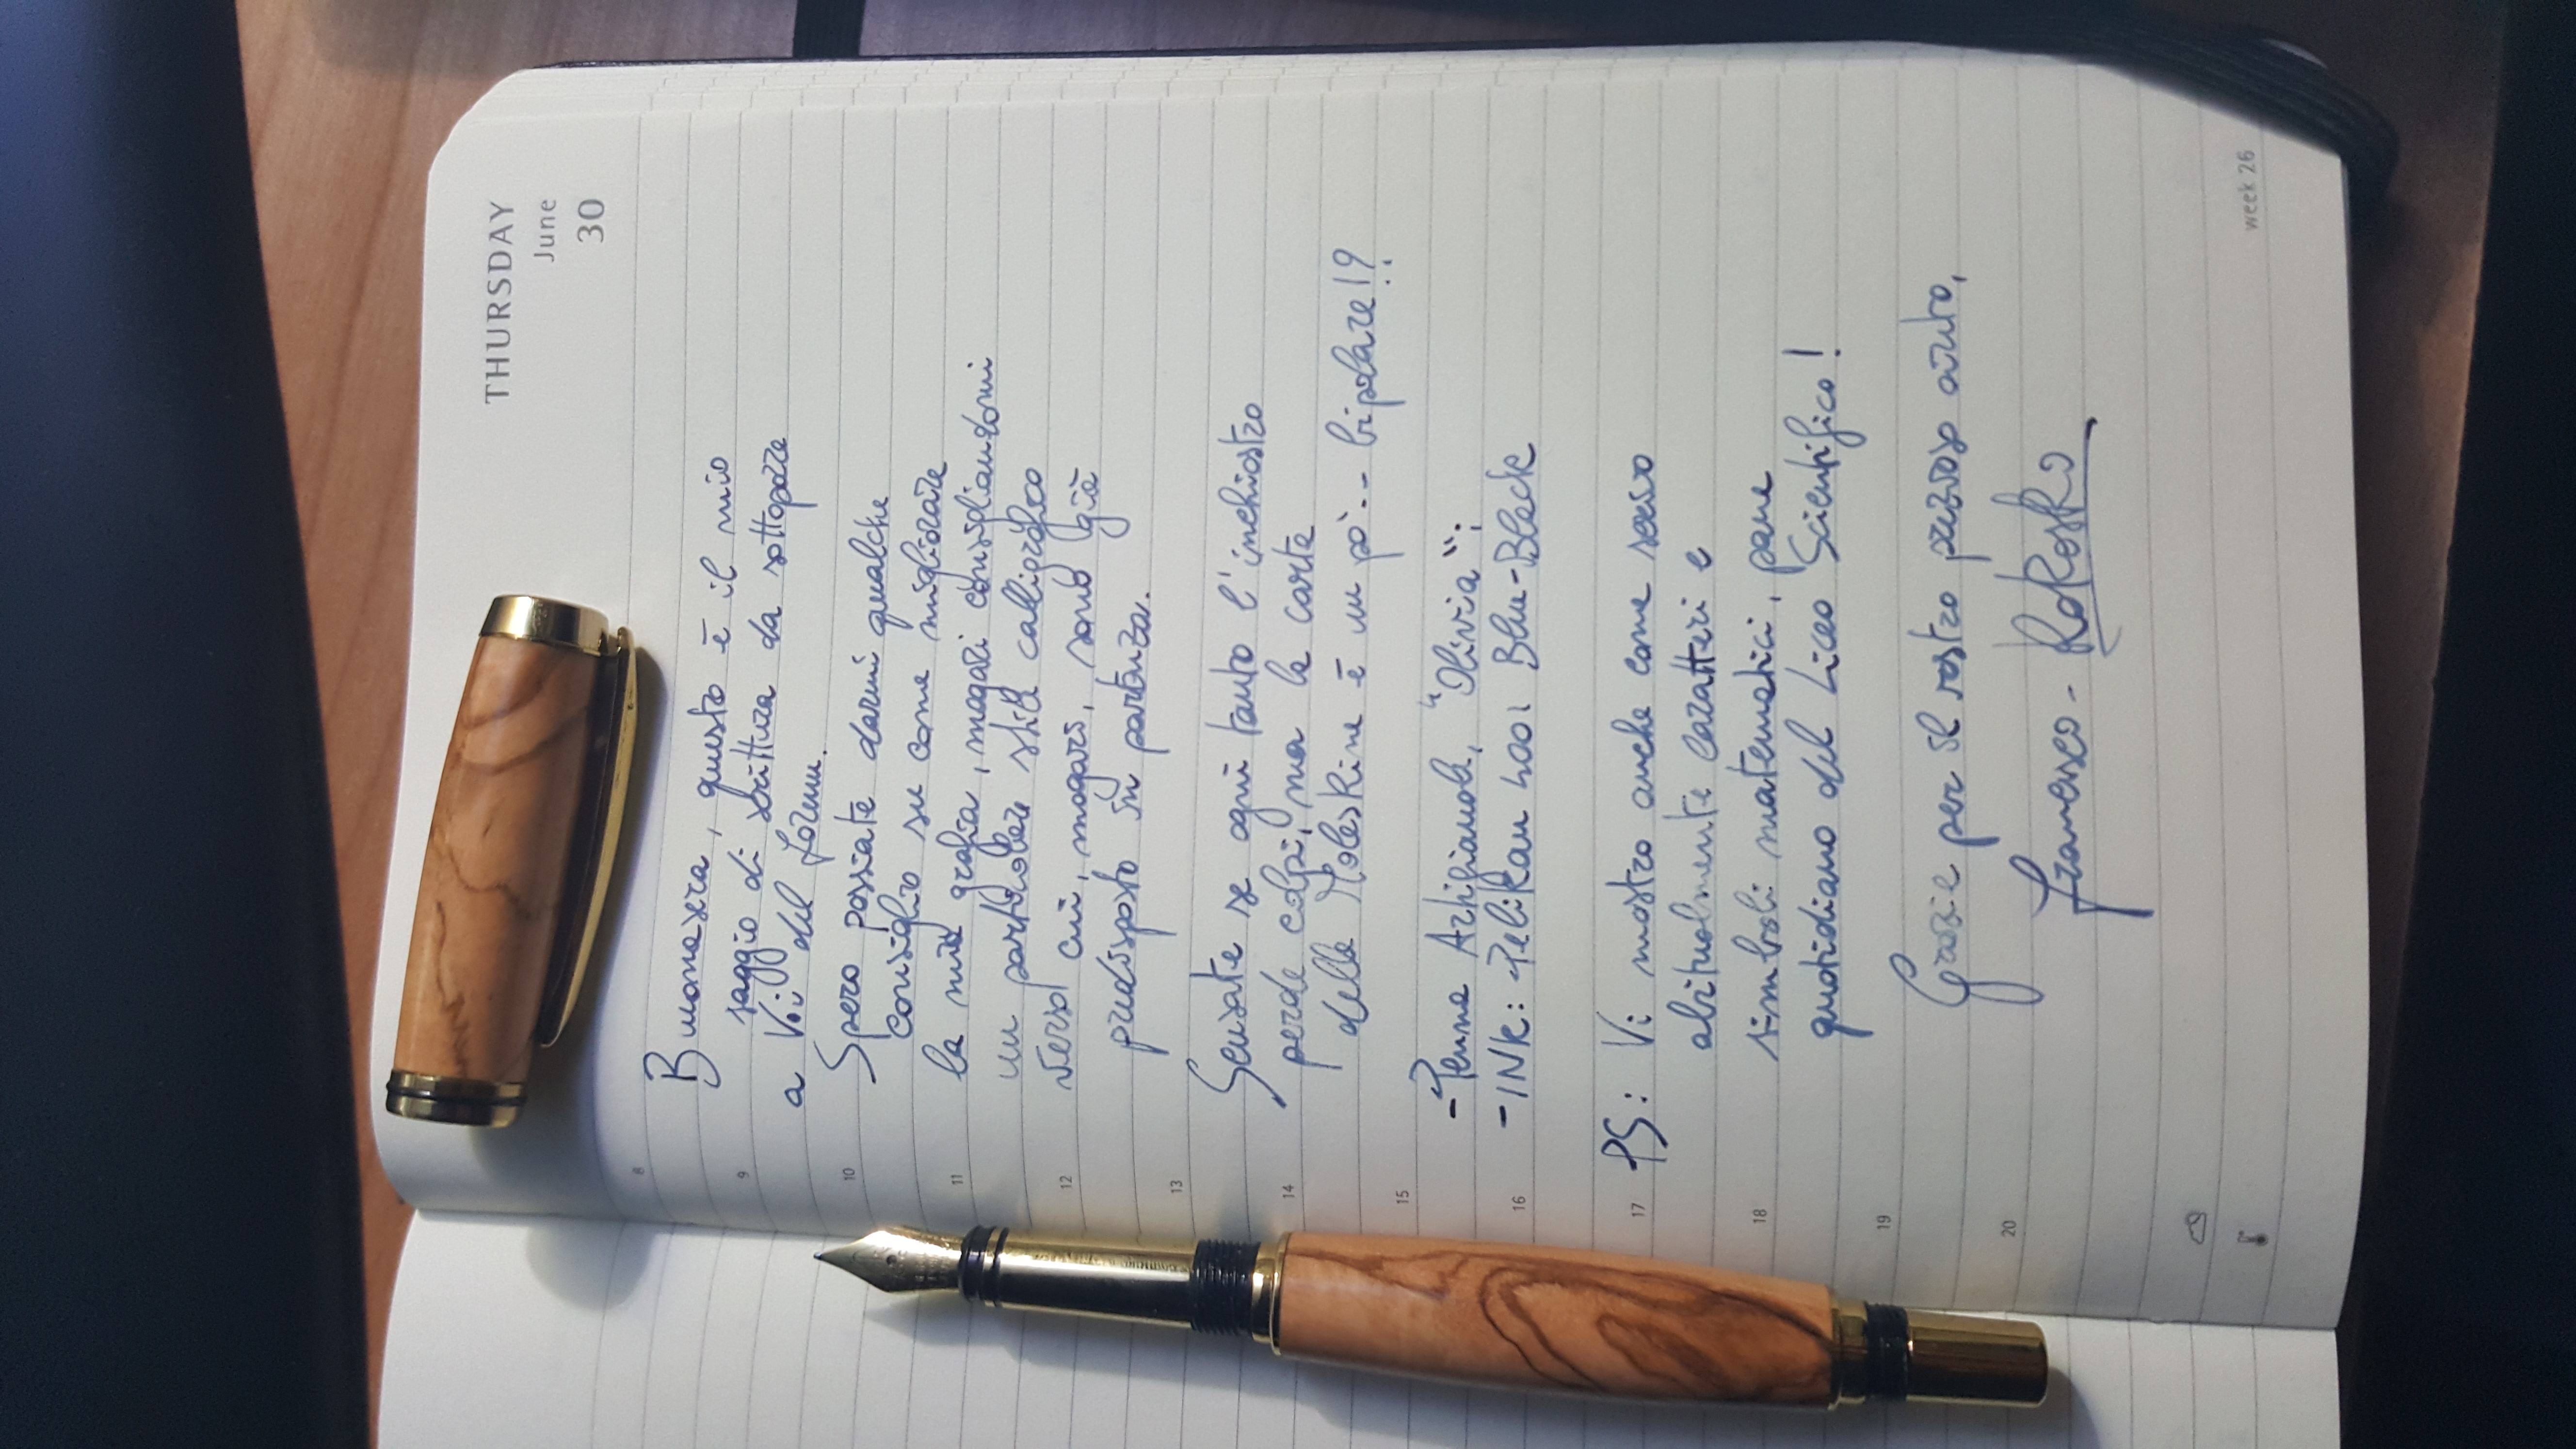 THURSDAY
June
30
8
Buonasera, questo è il mio
9
saggio di scrittura da sottoporre
a Voi del Forum.
10
Spero possiate darmi qualche
consiglio su come migliorare
11
la mia grafia, magari consigliandomi
un particolare stile calligrafico
12
verso cui, magari, sono già
predisposto in partenza.
13
Scusate se ogni tanto l'inchiostro
14
perde colpi, ma la carta
della Moleskine è un pò... bipolare!?
15
- Penna Artigianale, "Olivia";
16
- INK: Pelikan 4001 Blu-Black
17
PS: Vi mostro anche come scrivo
abitualmente caratteri e
18
simboli matematici, pane
quotidiano del Liceo Scientifico!
19
Grazie per il vostro prezioso aiuto,
20
Francesco -
week 26